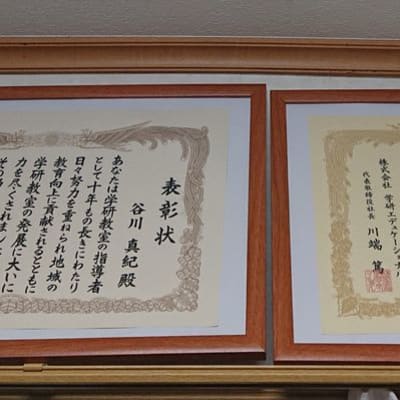 表彰状
谷川 真紀 殿
あなたは学研教室の指導者
として十年もの長きにわたり
日々努力を重ねられ地域の
教育向上に貢献されるとともに
学研教室の発展に大いに
力を尽くされました
株式会社 学研エデュケーショナル
代表取締役社長 川端 篤